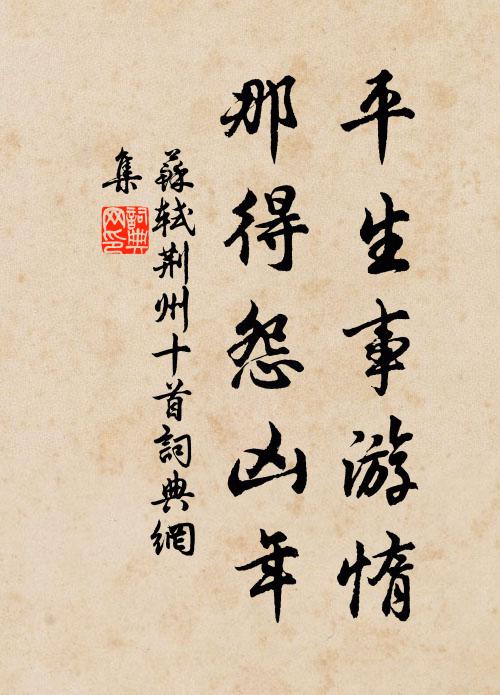 平生事游惰
那得怨凶年
蘇軾荊州十首詞典網
集
詞典
网印